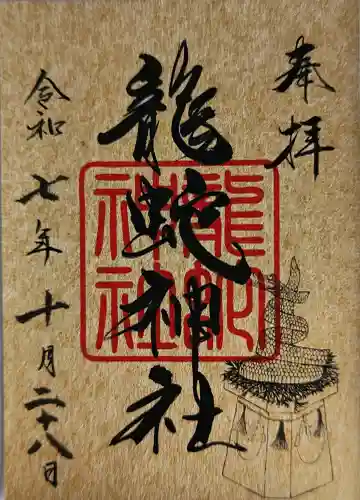 奉拝
龍蛇神社
龍蛇
神社
令和七年十月二十八日